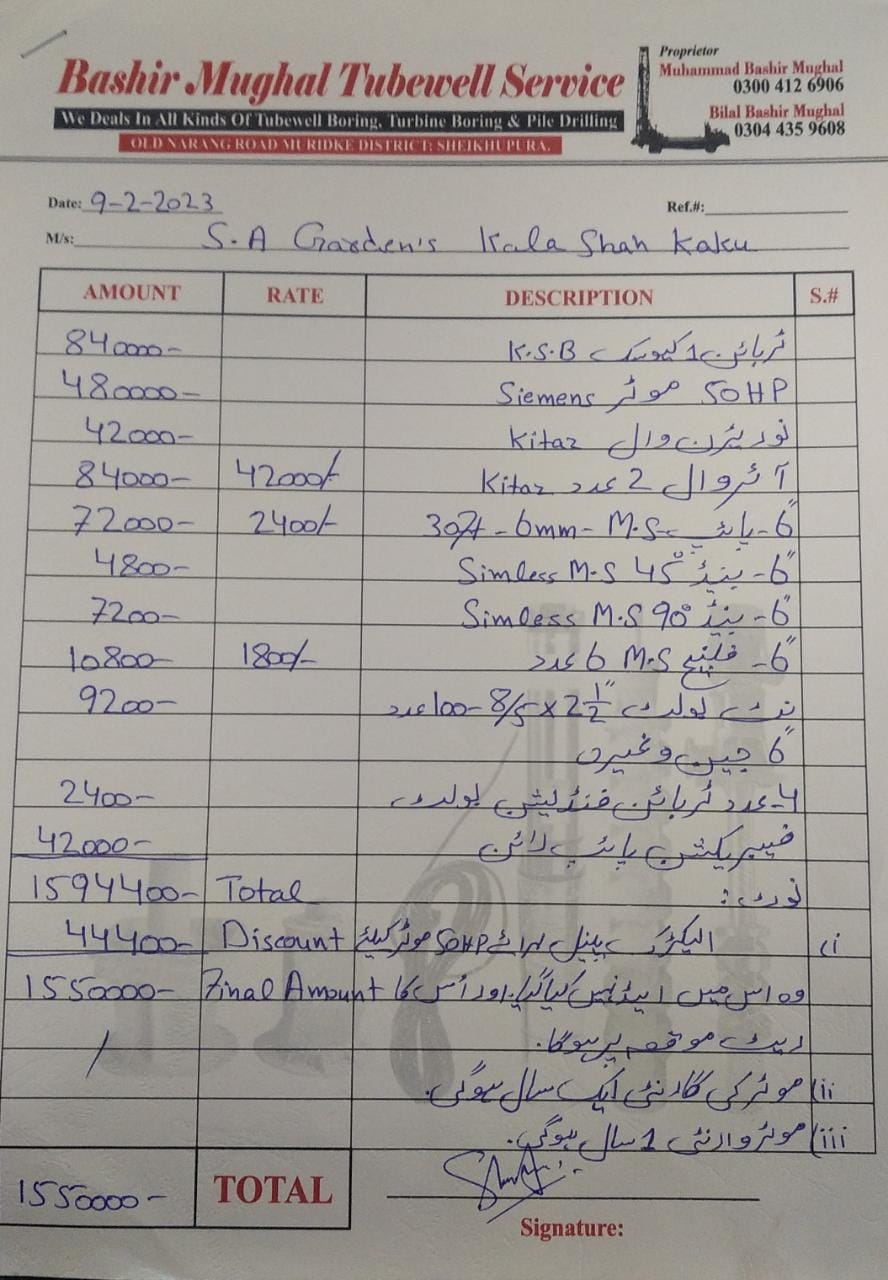 Bashir Mughal Tubewell Service
We Deals In All Kinds Of Tubewell Boring, Turbine Boring & Pile Drilling
OLD NARANG ROAD MURIDKE DISTRICT: SHEIKHUPURA.
Proprietor
Muhammad Bashir Mughal
0300 412 6906
Bilal Bashir Mughal
0304 435 9608
Date: 9-2-2023 Ref.#:
M/s: S.A Garden's Kala Shah Kaku
AMOUNT RATE DESCRIPTION S.#
840000- ٹربائن 1 کیوسک K.S.B
480000- 50HP موٹر Siemens
42000- نوریٹرن وال Kitaz
84000- 42000/- آئروال 2 عدد Kitaz
72000- 2400/- 6"- پائپ M.S - 6mm - 30ft
4800- 6"- بینڈ 45° Simless M.S
7200- 6"- بینڈ 90° Simless M.S
10800- 1800/- 6"- فلینج M.S 6 عدد
9200- نٹ بولٹ 2 1/2" x 8/5 - 100 عدد
6" جین وغیرہ
2400- 4-عدد ٹربائن فنڈیشن بولٹ
42000- فیبریکشن پائپ لائن
1594400- Total نوٹ:
44400- Discount الیکٹرک پینل برائے 50HP موٹر کیلئے i)
1550000- Final Amount وہ اس میں ایڈ نہیں کیا گیا. اور اس کا
ریٹ موقعہ پر ہوگا.
ii) موٹر کی گارنٹی ایک سال ہوگی.
iii) موٹر وارنٹی 1 سال ہوگی.
1550000- TOTAL
Signature: